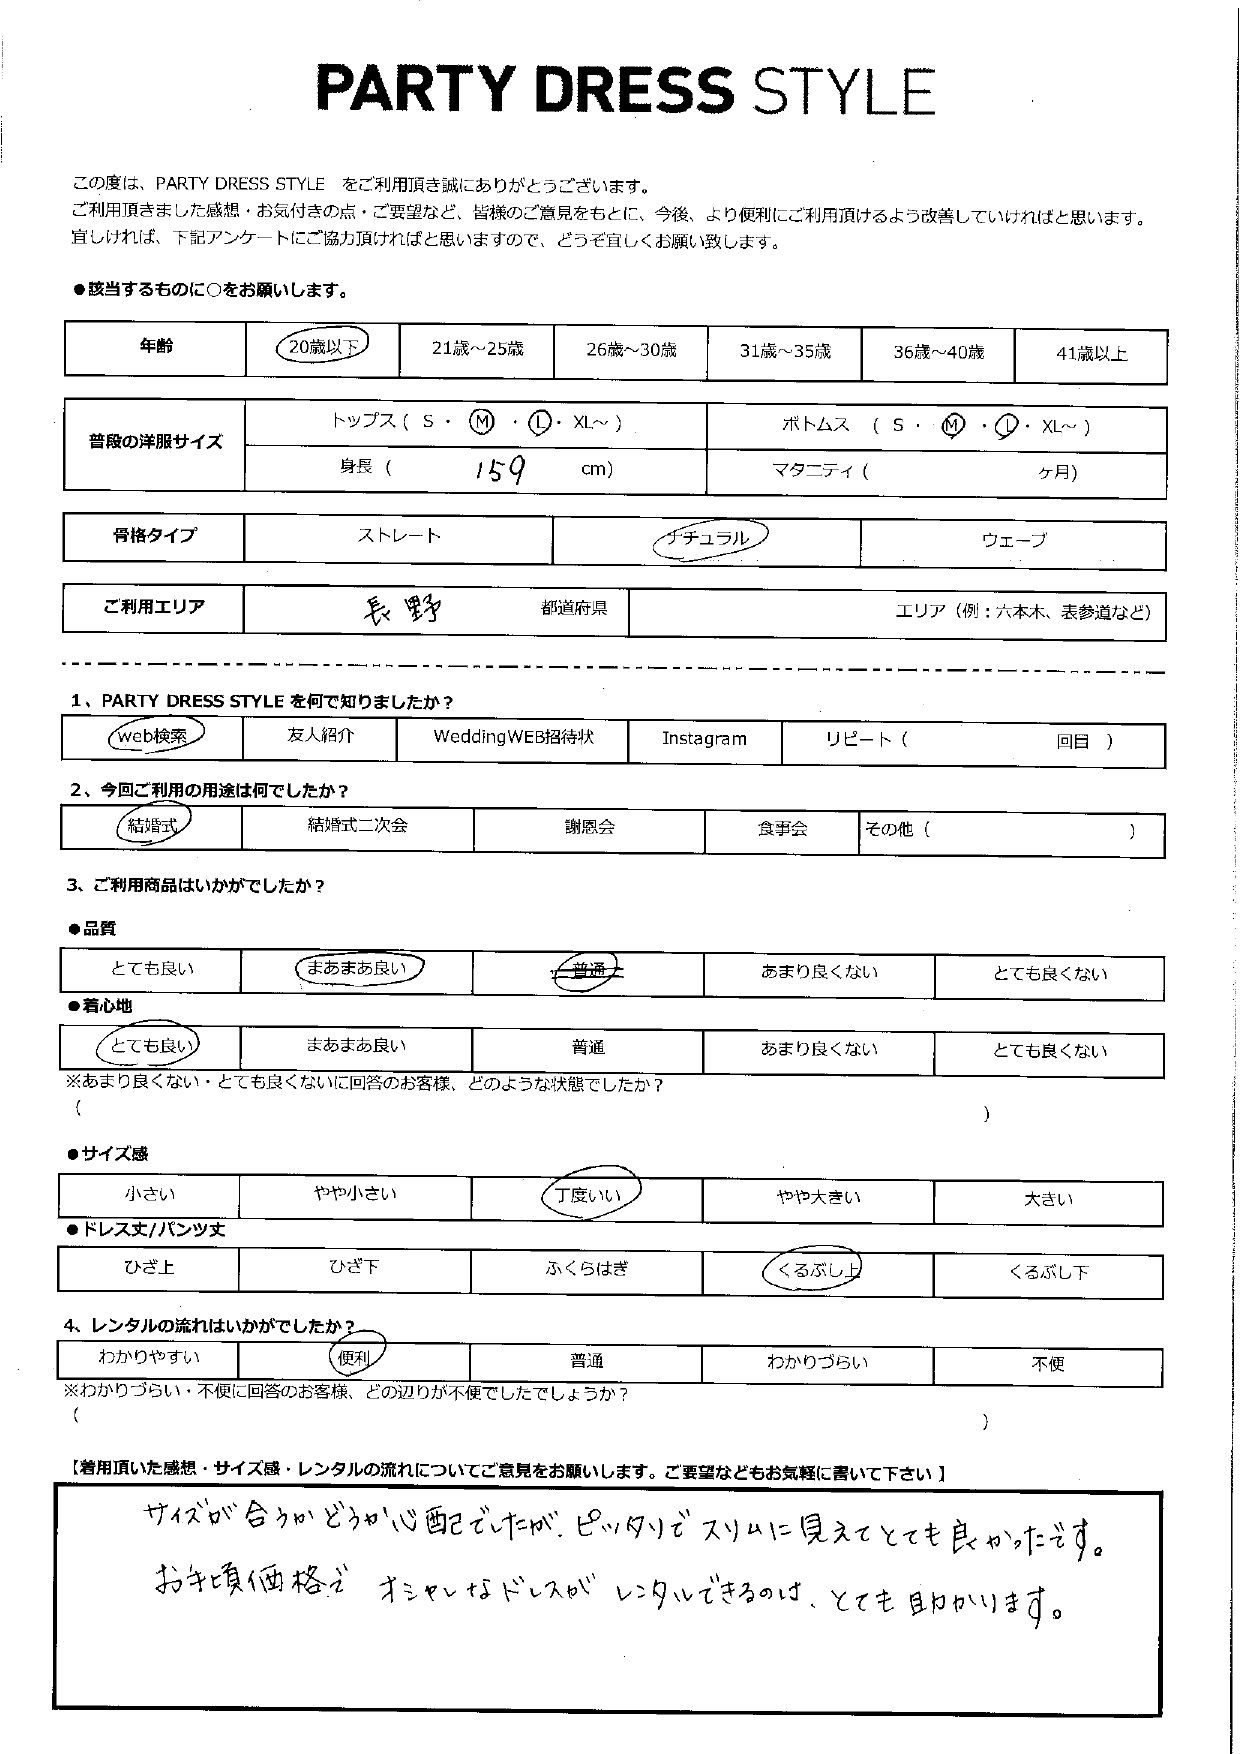 PARTY DRESS STYLE
この度は、PARTY DRESS STYLE をご利用頂き誠にありがとうございます。
ご利用頂きました感想・お気付きの点・ご要望など、皆様のご意見をもとに、今後、より便利にご利用頂けるよう改善していければと思います。
宜しければ、下記アンケートにご協力頂ければと思いますので、どうぞ宜しくお願い致します。
●該当するものに○をお願いします。
年齢 20歳以下 21歳～25歳 26歳～30歳 31歳～35歳 36歳～40歳 41歳以上
普段の洋服サイズ トップス ( S ・ M ・ L ・ XL～ ) ボトムス ( S ・ M ・ L ・ XL～ )
身長 ( 159 cm) マタニティ ( ヶ月)
骨格タイプ ストレート ナチュラル ウェーブ
ご利用エリア 長野 都道府県 エリア（例：六本木、表参道など）
1、PARTY DRESS STYLE を何で知りましたか？
web検索 友人紹介 WeddingWEB招待状 Instagram リピート ( 回目 )
2、今回ご利用の用途は何でしたか？
結婚式 結婚式二次会 謝恩会 食事会 その他 ( )
3、ご利用商品はいかがでしたか？
●品質
とても良い まあまあ良い 普通 あまり良くない とても良くない
●着心地
とても良い まあまあ良い 普通 あまり良くない とても良くない
※あまり良くない・とても良くないに回答のお客様、どのような状態でしたか？
( )
●サイズ感
小さい やや小さい 丁度いい やや大きい 大きい
●ドレス丈/パンツ丈
ひざ上 ひざ下 ふくらはぎ くるぶし上 くるぶし下
4、レンタルの流れはいかがでしたか？
わかりやすい 便利 普通 わかりづらい 不便
※わかりづらい・不便に回答のお客様、どの辺りが不便でしたでしょうか？
( )
【着用頂いた感想・サイズ感・レンタルの流れについてご意見をお願いします。ご要望などもお気軽に書いて下さい】
サイズが合うかどうか心配でしたが、ピッタリでスリムに見えてとても良かったです。
お手頃価格で オシャレなドレスが レンタルできるのは、とても助かります。